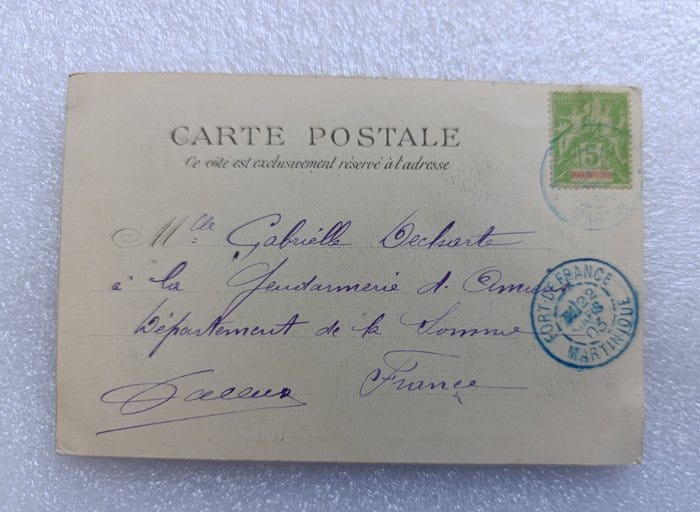 CARTE POSTALE
Ce côté est exclusivement réservé à l'adresse
5
MARTINIQUE
Mlle Gabrielle
à la Gendarmerie d'Amiens
Département de la Somme
France
FORT-DE-FRANCE
22
MARS
03
MARTINIQUE